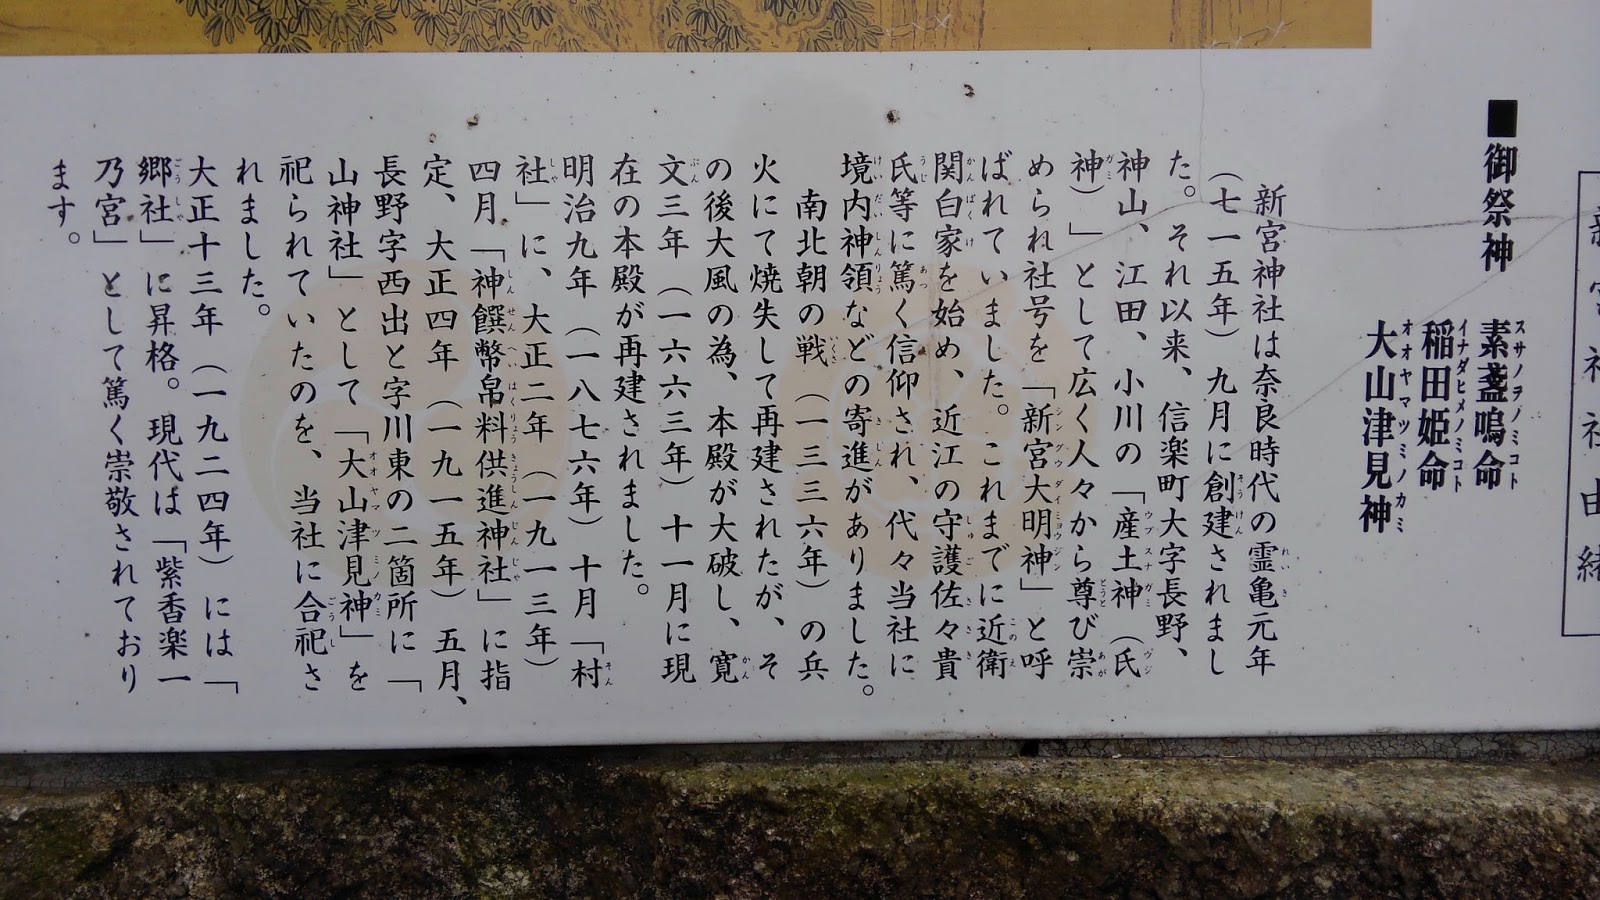 新宮神社由緒
■御祭神
素盞嗚命
スサノヲノミコト
稲田姫命
イナダヒメノミコト
大山津見神
オオヤマツミノカミ
新宮神社は奈良時代の霊亀元年
（七一五年）九月に創建されまし
た。それ以来、信楽町大字長野、
神山、江田、小川の「産土神（氏
神）」として広く人々から尊び崇
められ社号を「新宮大明神」と呼
ばれていました。これまでに近衛
関白家を始め、近江の守護佐々貴
氏等に篤く信仰され、代々当社に
境内神領などの寄進がありました。
南北朝の戦（一三三六年）の兵
火にて焼失して再建されたが、そ
の後大風の為、本殿が大破し、寛
文三年（一六六三年）十一月に現
在の本殿が再建されました。
明治九年（一八七六年）十月「村
社」に、大正二年（一九一三年）
四月「神饌幣帛料供進神社」に指
定、大正四年（一九一五年）五月、
長野字西出と字川東の二箇所に「
山神社」として「大山津見神」を
祀られていたのを、当社に合祀さ
れました。
大正十三年（一九二四年）には「
郷社」に昇格。現代は「紫香楽一
乃宮」として篤く崇敬されており
ます。